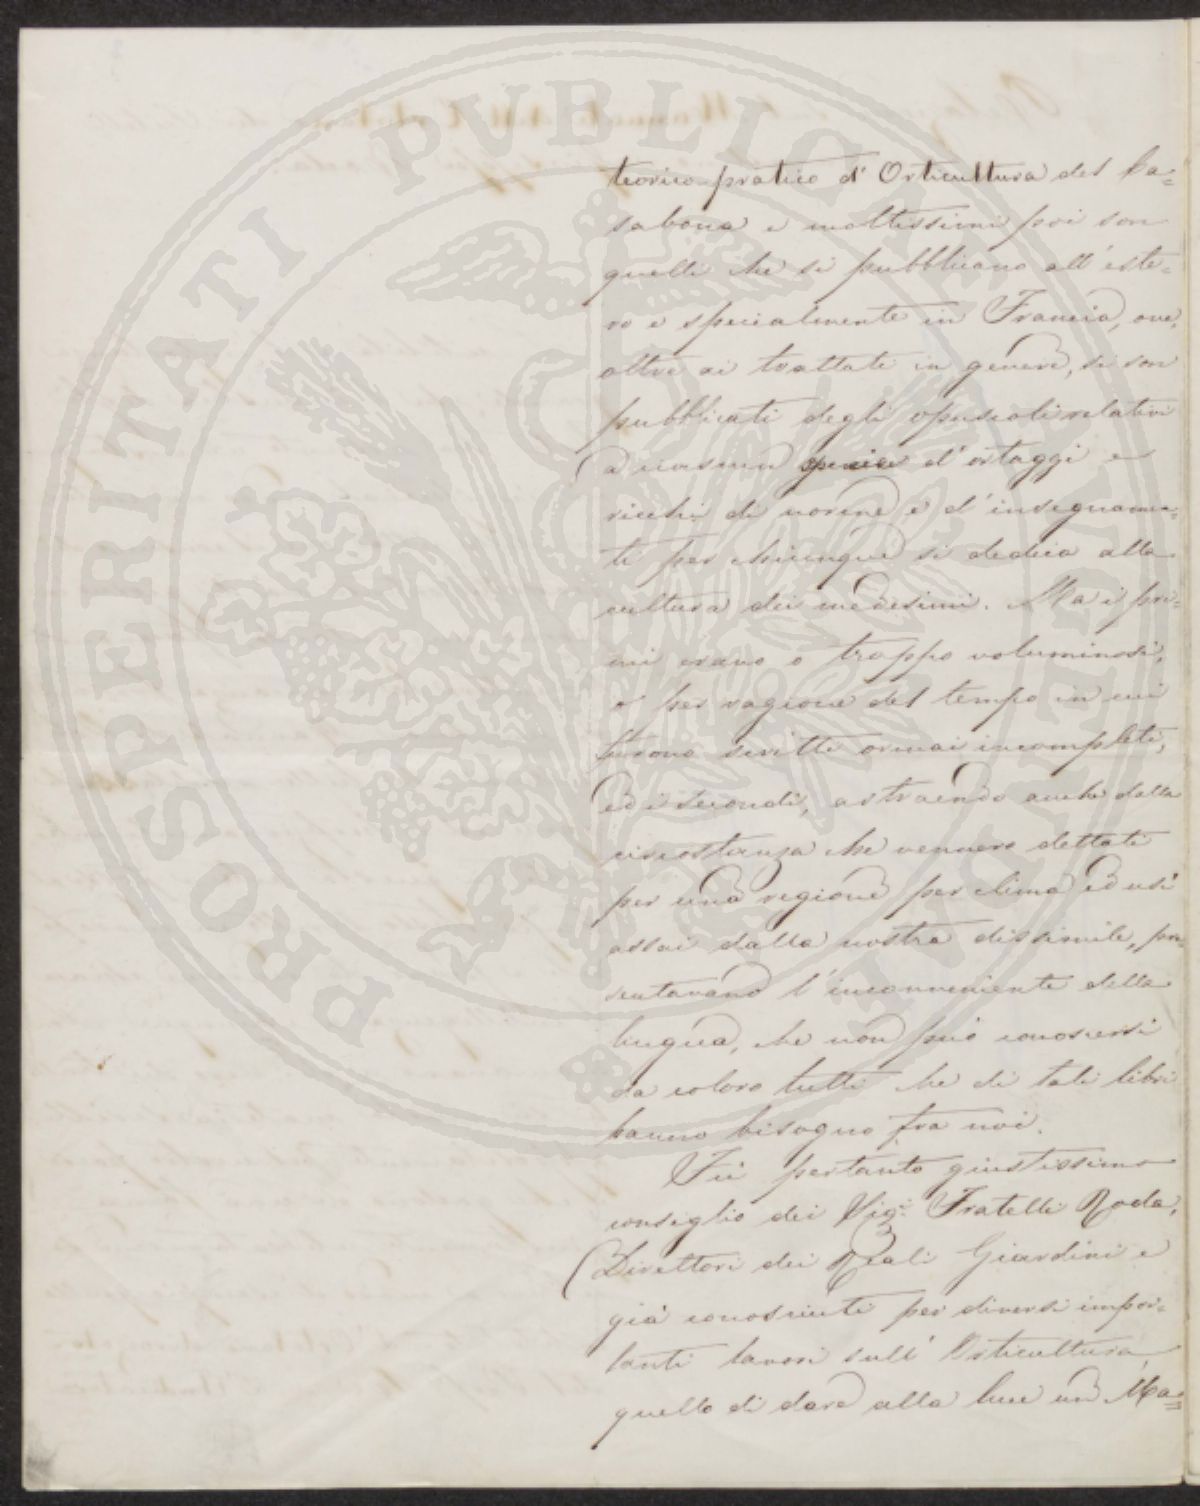 PROSPERITATI PUBLICAE AUGENDAE
teorico-pratico d'Orticultura del Ca=
sabona e moltissimi poi son
quelli che si pubblicano all'este=
ro e specialmente in Francia, ove,
oltre ai trattati in genere, si son
pubblicati degli opuscoli relativi
a ciascuna specie d'ortaggi e
ricchi di norme e d'insegnamen=
ti per chiunque si dedica alla
cultura dei medesimi. Ma i pri=
mi erano o troppo voluminosi,
o per ragione del tempo in cui
furono scritti ormai incompleti,
ed i secondi, astraendo anche dalla
circostanza che vennero dettati
per una regione per clima ed usi
assai dalla nostra dissimile, pre=
sentavano l'inconveniente della
lingua, che non può conoscersi
da coloro tutti che di tali libri
hanno bisogno fra noi.
Fu pertanto giustissimo
consiglio dei Sig.i Fratelli Roda,
Direttori dei Reali Giardini e
già conosciuti per diversi impor=
tanti lavori sull'Orticultura,
quello di dare alla luce un Ma=